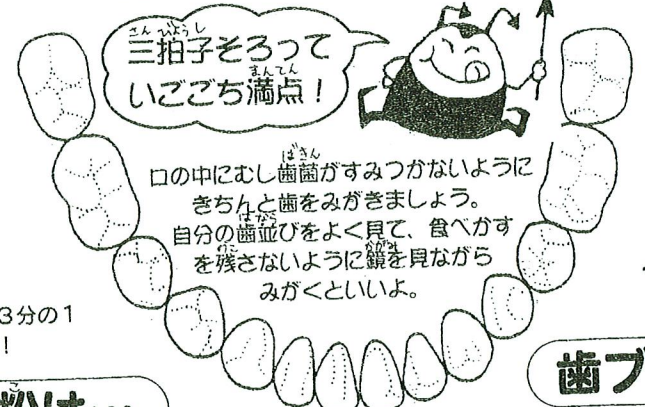 三拍子そろって
いごごち満点！
口の中にむし歯菌がすみつかないように
きちんと歯をみがきましょう。
自分の歯並びをよく見て、食べかす
を残さないように鏡を見ながら
みがくといいよ。
3分の1
！
歯ブ